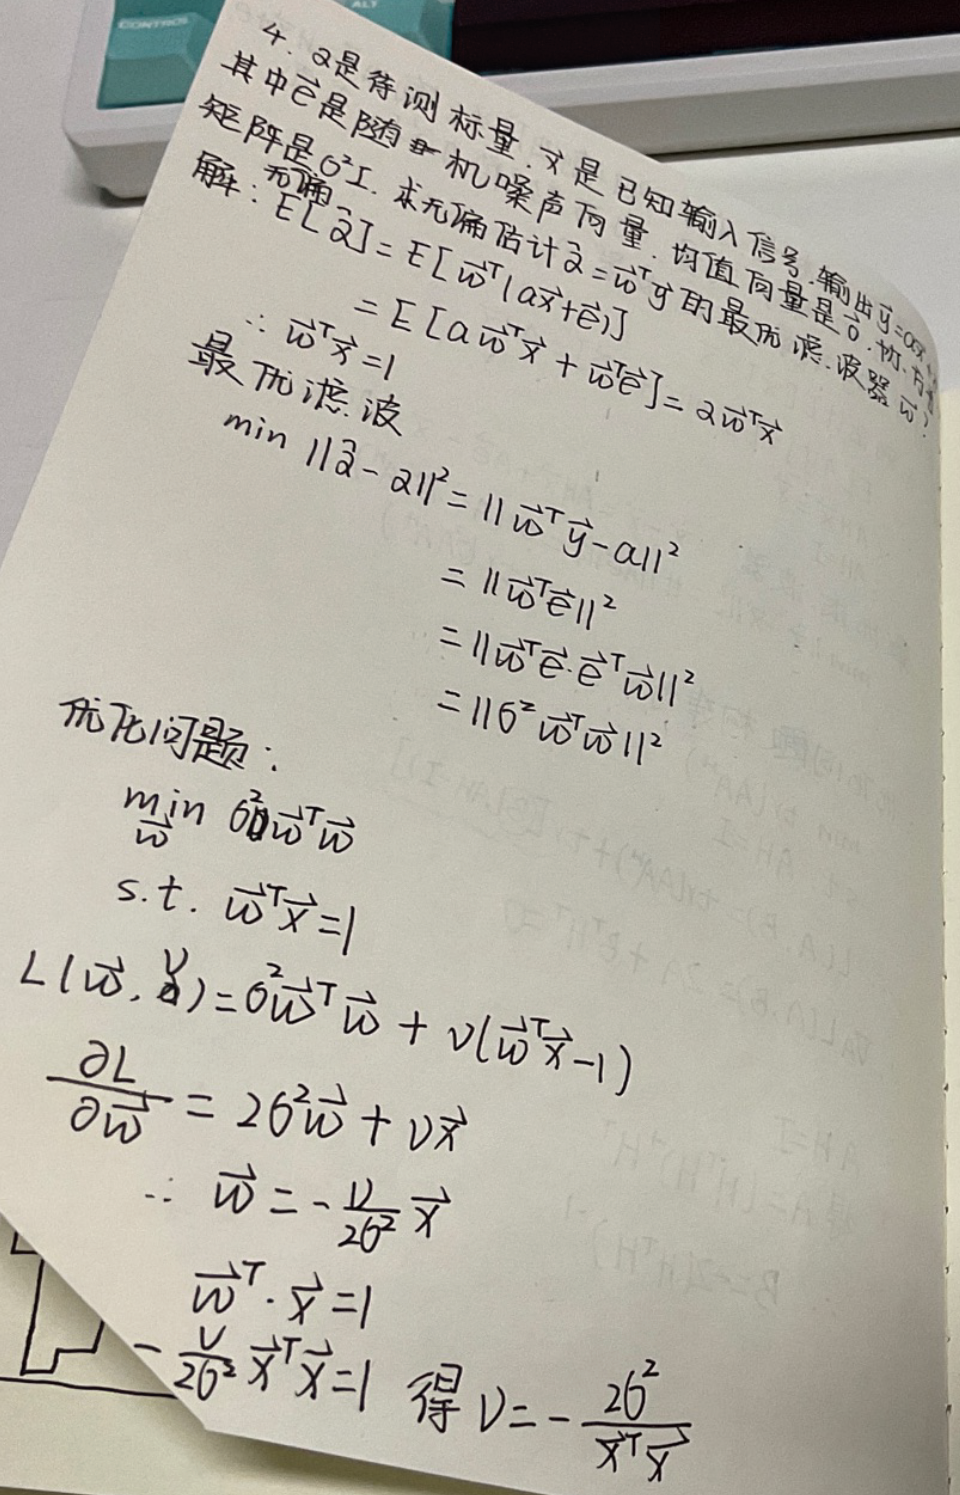 CONTROL
ALT
4. a是待测标量. x⃗是已知输入信号. 输出y⃗=ax⃗+
其中e⃗是随机噪声向量. 均值向量是0⃗. 协方差
矩阵是σ²I. 求无偏估计â=w⃗ᵀy⃗的最优滤波器w⃗?
无偏
解: E[â]=E[w⃗ᵀ(ax⃗+e⃗)]
=E[aw⃗ᵀx⃗+w⃗ᵀe⃗]=aw⃗ᵀx⃗
∴ w⃗ᵀx⃗=1
最优滤波
min ||â-a||²=||w⃗ᵀy⃗-a||²
=||w⃗ᵀe⃗||²
=||w⃗ᵀe⃗·e⃗ᵀw⃗||²
=||σ²w⃗ᵀw⃗||²
优化问题:
min σ²w⃗ᵀw⃗
w⃗
s.t. w⃗ᵀx⃗=1
L(w⃗,ν)=σ²w⃗ᵀw⃗+ν(w⃗ᵀx⃗-1)
∂L/∂w⃗=2σ²w⃗+νx⃗
∴ w⃗=-ν/2σ² x⃗
w⃗ᵀ·x⃗=1
-ν/2σ² x⃗ᵀx⃗=1 得ν=-2σ²/x⃗ᵀx⃗